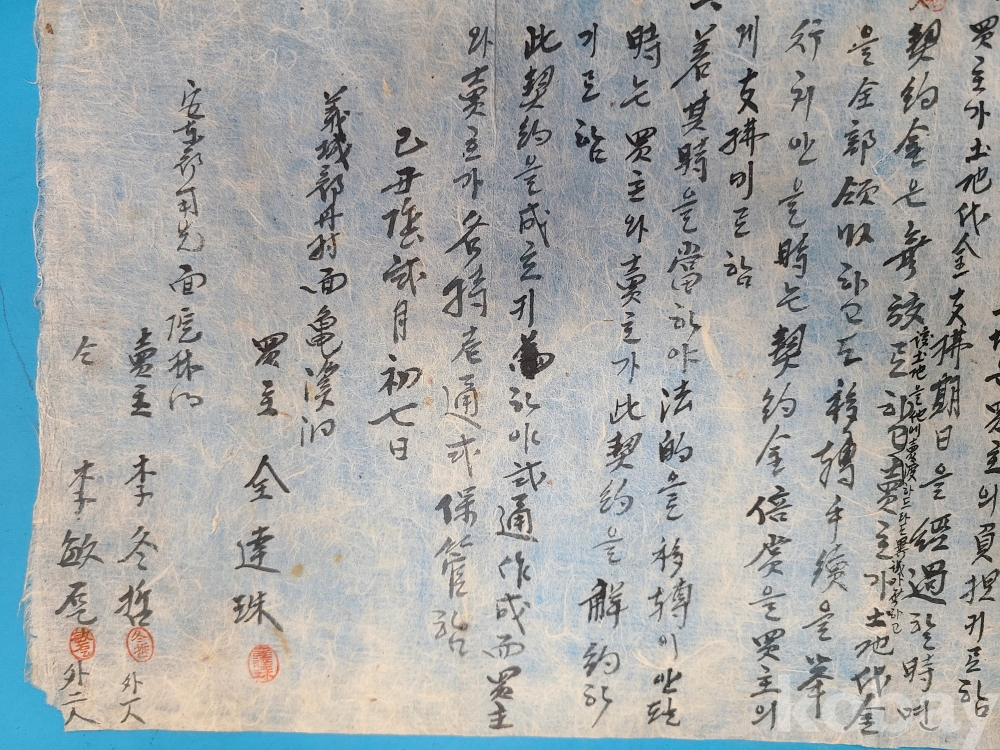 負担키로함
買主가土地代金支拂期日을經過할時며
契約金은無效로하고賣主가土地代金
該土地을他에賣渡하드라도異議가無하고
을全部領收하고도移轉手續을畢
行치안을時는契約金倍償을買主의
게支拂미로함
若其時을當하야法的을移轉이안되
時는買主와賣主가此契約을解約하
기로함
此契約을成立키爲하야弍通作成而買主
와賣主가各持壱通式保管함
己丑陰弍月初七日
義城郡丹村面亀溪洞
買主 全達珠
安東郡南先面院林洞
賣主 李冬哲 外一人
仝 李敏 外二人